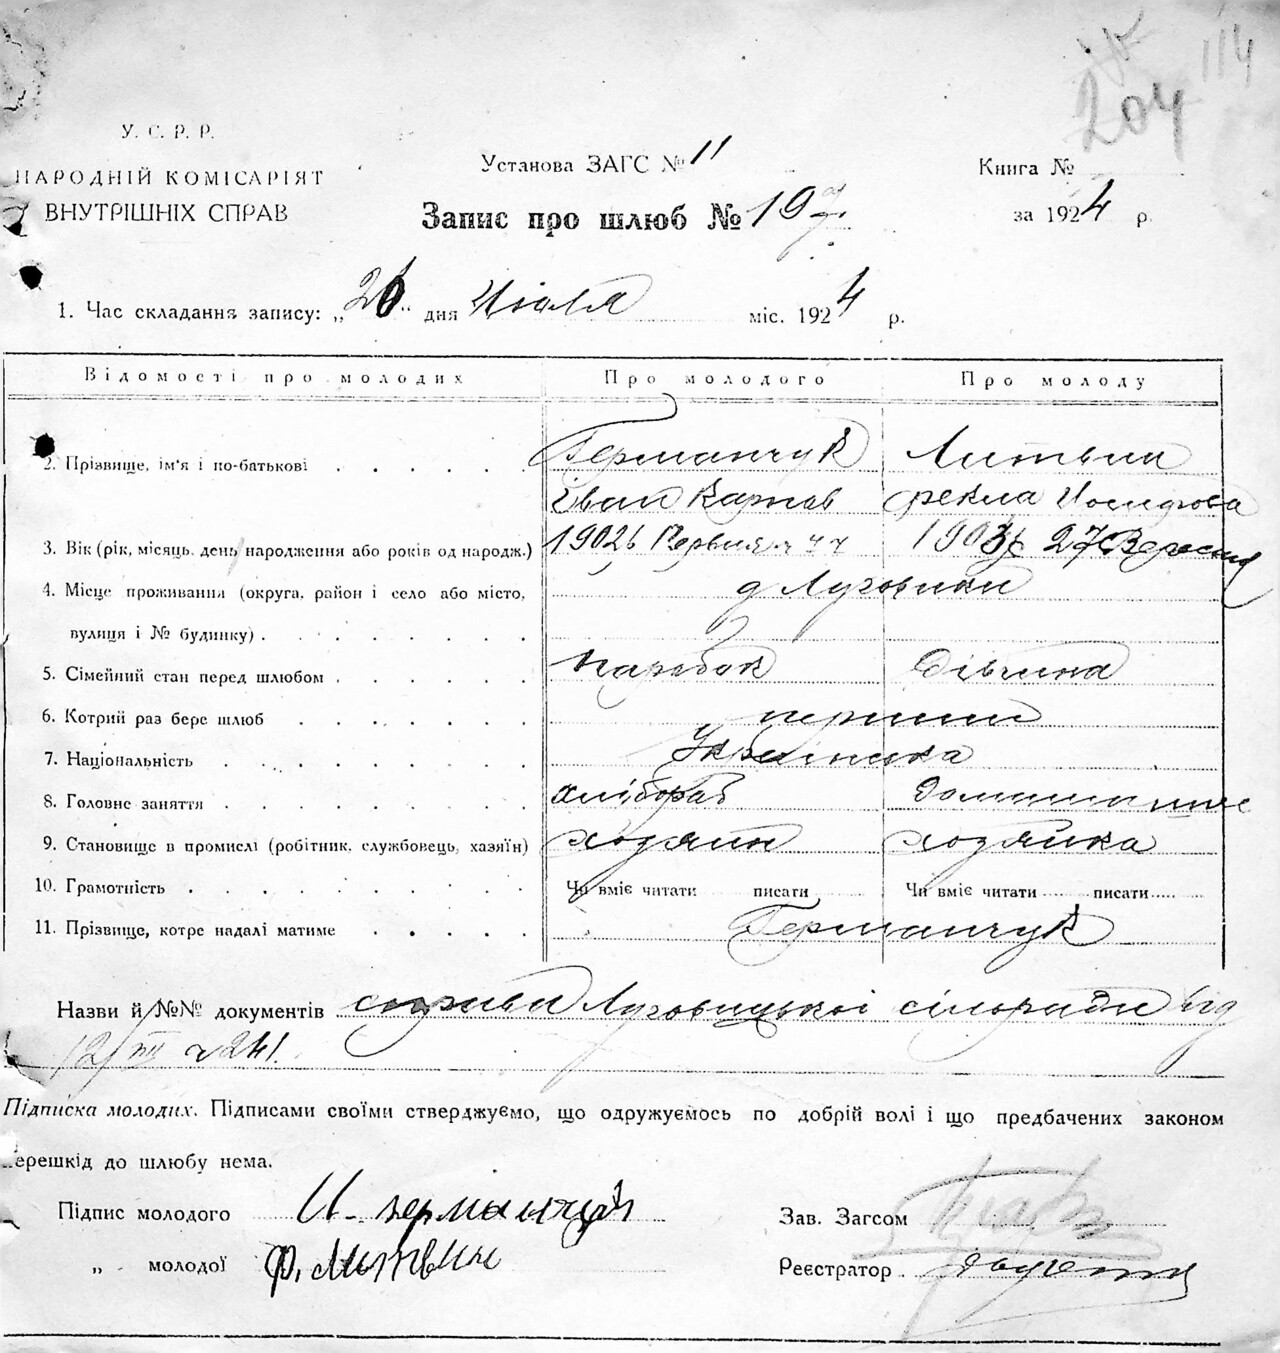 204
114
У. С. Р. Р.
НАРОДНІЙ КОМІСАРІЯТ
ВНУТРІШНІХ СПРАВ
Установа ЗАГС № 11
Запис про шлюб № 197
Книга №
за 1924 р.
1. Час складання запису: „26" дня Июля міс. 1924 р.
Відомості про молодих Про молодого Про молоду
2. Прізвище, ім'я і по-батькові Германчук Литвин
Іван Карпов Фекла Иосифова
3. Вік (рік, місяць, день народження або років од народж.) 1902 27 Вересня
4. Місце проживання (округа, район і село або місто, д Луговики
вулиця і № будинку)
5. Сімейний стан перед шлюбом парубок дівчина
6. Котрий раз бере шлюб перший
7. Національність Українська
8. Головне заняття хлібороб
9. Становище в промислі (робітник, службовець, хазяїн) хозяин хозяйка
10. Грамотність Чи вміє читати писати Чи вміє читати писати
11. Прізвище, котре надалі матиме Германчук
Назви й №№ документів Луговицької сільради від
12/VII 241.
Підписка молодих. Підписами своїми стверджуємо, що одружуємось по добрій волі і що предбачених законом
перешкід до шлюбу нема.
Підпис молодого И. Германчук
„ молодої Ф. Литвин
Зав. Загсом
Реєстратор